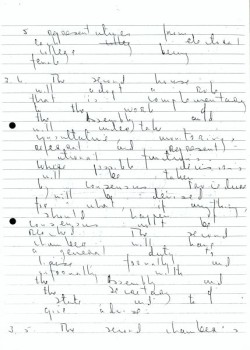 5 representatives from
college being
2.6 The second house
will adopt a role
that is complementary
to the work of
the Assembly and
will undertake
consultative, monitoring,
referral and represent-
ational functions.
Where possible decisions
will be taken
by consensus. Procedures
will be devised
for what, if anything,
should happen if
consensus will not be
reached. The second
chamber will have
a general duty to
liaise formally and
informally with
the Assembly and
the Secretary of
State and to
give advice.
3.5. The second chamber's